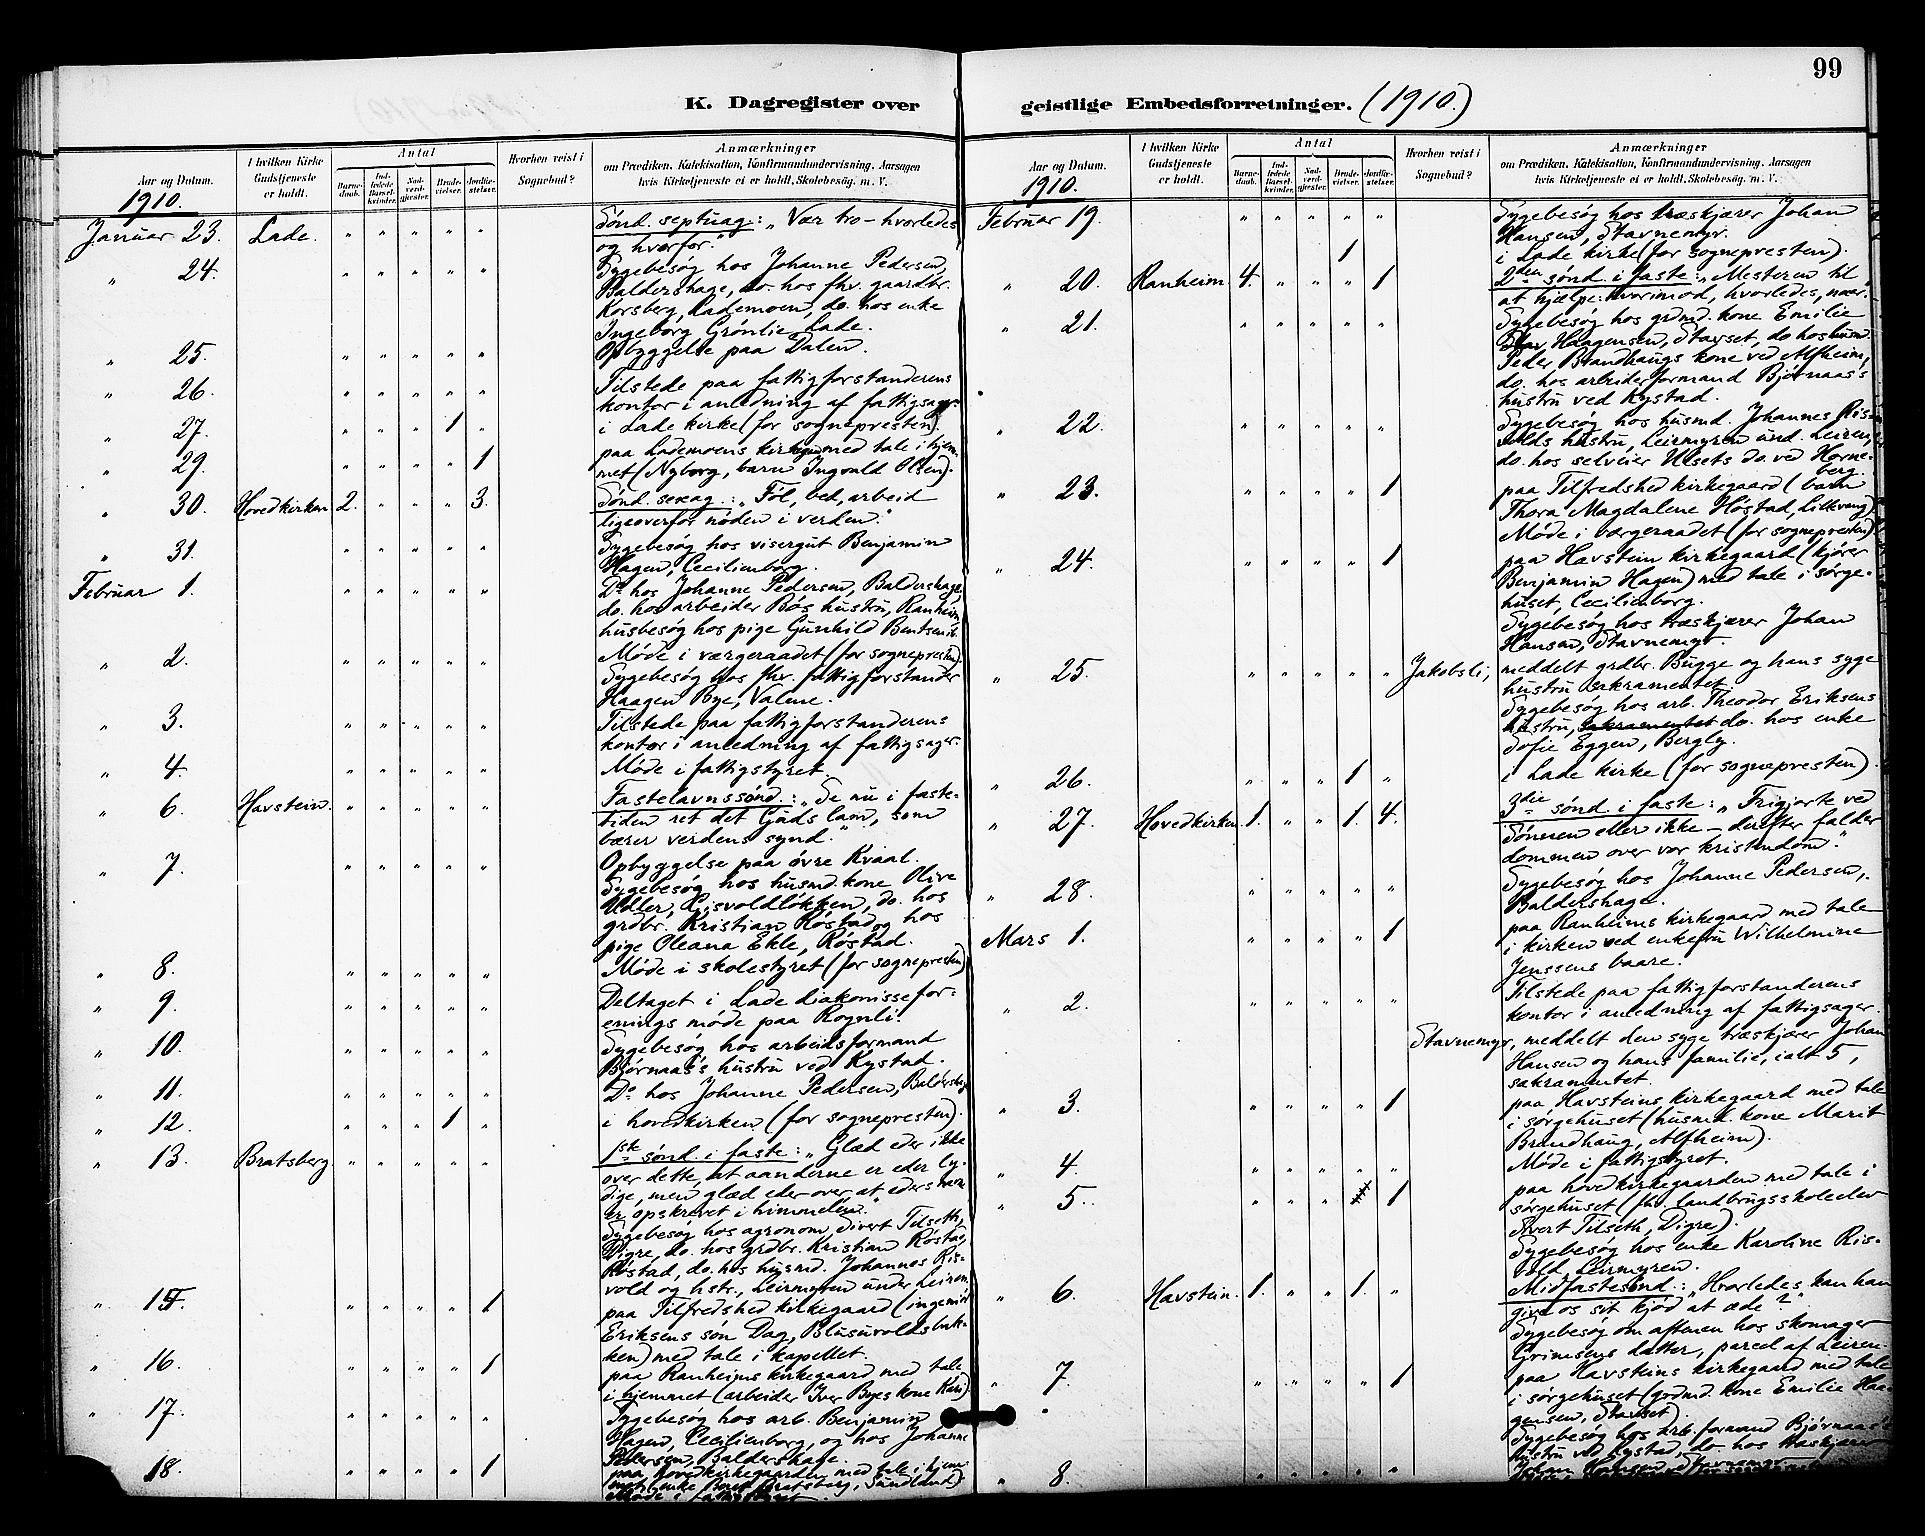 99
K. Dagregister over geistlige Embedsforretninger. (1910.)
Aar og Datum.
I hvilken Kirke Gudstjeneste er holdt.
Antal
Barne-daab.
Ind-ledede Barsel-kvinder.
Nad-verd-gjester.
Brude-vielser.
Jordfæ-stelser.
Hvorhen reist i Sognebud?
Anmærkninger
om Prædiken, Katekisation, Konfirmandundervisning, Aarsagen
hvis Kirketjeneste ei er holdt, Skolebesøg, m. V.
1910.
Januar 23. Lade. " " " " " Sönd. septuag.: "Vær tro – hvorledes
og hvorfor."
" 24. " " " " " Sygebesög hos Johanne Pedersen,
Baldershage, do hos fhv. gaardbr.
Korsberg, Lademoen, do. hos enke
Ingeborg Grönlie, Lade.
" 25. " " " " " Opbyggelse paa Dalen.
" 26. " " " " " Tilstede paa fattigforstanderens
kontor i anledning af fattigsager.
" 27. " " " 1 " i Lade kirke (for sognepresten).
" 29. " " " " 1 paa Lademoens kirkegd med tale i hjem-
met (Nyborg, barn Ingvald Olsen).
" 30. Hovedkirken 2. " " " 3. Sönd. sexag.: "Föl, bed, arbeid
ligeoverfor nöden i verden."
" 31. " " " " " Sygebesög hos visergut Benjamin
Hagen, Cecilienborg.
Februar 1. " " " " " Do hos Johanne Pedersen, Baldershage,
do. hos arbeider Bös hustru, Ranheim,
husbesög hos pige Gunhild Bentsen ib.
" 2. " " " " " Möde i værgeraadet (for sognepresten).
Sygebesög hos fhv. fattigforstander
Haagen Bye, Valene.
" 3. " " " " " Tilstede paa fattigforstanderens
kontor i anledning af fattigsager.
" 4. " " " " " Möde i fattigstyret.
" 6. Havstein. " " " " " Fastelavnssönd.: "Se nu i faste-
tiden ret det Guds lam, som
bærer verdens synd."
" 7. " " " " " Opbyggelse paa övre Kvaal.
Sygebesög hos husmd. kone Olive
Udler, Risvoldlökken, do. hos
grdbr. Kristian Röstad og hos
pige Oleana Ekle, Röstad.
" 8. " " " " " Möde i skolestyret (for sognepresten)
" 9. " " " " " Deltaget i Lade diakonissefor-
enings möde paa Rognli.
" 10. " " " " " Sygebesög hos arbeidsformand
Björnaas's hustru ved Kystad.
" 11. " " " " " Do hos Johanne Pedersen, Baldershage
" 12. " " " 1 " i hovedkirken (for sognepresten).
" 13. Bratsberg. " " " " " 1ste sönd. i faste: "Glæd eder ikke
over dette, at aanderne er eder ly-
dige, men glæd eder over, at eders navne
er opskrevet i himmelen."
Sygebesög hos agronom Sivert Tilseth,
Digre, do. hos grdbr. Kristian Röstad,
Röstad, do. hos husmd. Johannes Ris-
vold og hstr., Leirmyren under Leiren.
" 15. " " " " 1 paa Tilfredshed kirkegaard (ingeniör
Eriksens sön Dag, Blusuvoldsbak-
ken) med tale i kapellet.
" 16. " " " " 1 paa Ranheims kirkegaard med tale
i hjemmet (arbeider Iver Byes kone Kari).
" 17. " " " " " Sygebesög hos arb. Benjamin
Hagen, Cecilienborg, og hos Johanne
Pedersen, Baldershage.
" 18. " " " " 1 paa hovedkirkegaarden med tale i hjem-
met (enke Bratsberg, Sundland)
Möde i fattigstyret.
Aar og Datum.
I hvilken Kirke Gudstjeneste er holdt.
Antal
Barne-daab.
Ind-ledede Barsel-kvinder.
Nad-verd-gjester.
Brude-vielser.
Jordfæ-stelser.
Hvorhen reist i Sognebud?
Anmærkninger
om Prædiken, Katekisation, Konfirmandundervisning, Aarsagen
hvis Kirketjeneste ei er holdt, Skolebesøg, m. V.
1910.
Februar 19. " " " " " Sygebesög hos træskjærer Johan
Hansen, Stavnemyr.
1 i Lade kirke (for sognepresten).
" 20. Ranheim 4. " " " 1 2den sönd. i faste: "Mesteren til
at hjælpe: hvorimod, hvorledes, naar."
" 21. " " " " " Sygebesög hos grdmd. kone Emilie
Haagensen, Stavset, do hos husmd.
Peder Brandhaugs kone ved Alfheim,
do. hos arbeiderformand Björnaas's
hustru ved Kystad.
" 22. " " " " " Sygebesög hos husmd. Johannes Ris-
volds hustru, Leirmyren und. Leiren,
do. hos selveier Ulsets do. ved Horne-
berg.
" 23. " " " " 1 paa Tilfredshed kirkegaard (barn
Thora Magdalene Höstad, Lilkvang).
Möde i værgeraadet (for sognepresten)
" 24. " " " " 1 paa Havstein kirkegaard (kjörer
Benjamin Hagen) med tale i sörge-
huset, Cecilienborg.
Sygebesög hos træskjærer Johan
Hansen, Stavnemyr.
" 25. " " " " " Jakobsli, meddelt grdbr. Bugge og hans syge
hustru sakramentet.
Sygebesög hos arb. Theodor Eriksens
hustru, sakramentet do. hos enke
Sofie Eggen, Bergly.
" 26. " " " 1 " i Lade kirke (for sognepresten).
" 27. Hovedkirken. 1. " " 1. 4. 3die sönd. i faste: "Frigjorte ved
Sönnen eller ikke – derefter falder
dommen over vor kristendom."
" 28. " " " " " Sygebesög hos Johanne Pedersen,
Baldershage.
Mars 1. " " " " 1 paa Ranheims kirkegaard med tale
i kirken ved enkefru Wilhelmine
Jenssens baare.
" 2. " " " " " Tilstede paa fattigforstanderens
kontor i anledning af fattigsager.
Stavnemyr, meddelt den syge træskjærer Johan
Hansen og hans familie, ialt 5,
sakramentet.
" 3. " " " " 1 paa Havsteins kirkegaard med tale
i sörgehuset (husmd. kone Marit
Brandhaug, Alfheim).
" 4. " " " " " Möde i fattigstyret.
" 5. " " " 1 paa hovedkirkegaarden med tale i
sörgehuset (fhv. landbrugsskoleelev
Sivert Tilseth, Digre).
Sygebesög hos enke Karoline Ris-
vold, Leirmyren.
" 6. Havstein. 1. " " 1. " Midfastesönd.: "Hvorledes kan han
give os sit kjöd at æde?"
Sygebesög om aftenen hos skomager
Grimsens datter, parcel af Leiren
" 7. " " " " 1 paa Havsteins kirkegaard med tale
i sörgehuset (grdmd. kone Emilie Haa-
gensen, Stavset).
Sygebesög hos arb. formand Björnaas's
hustru ved Kystad, do. hos træskjærer
" 8. " " " " " Johan Hansen, Stavnemyr